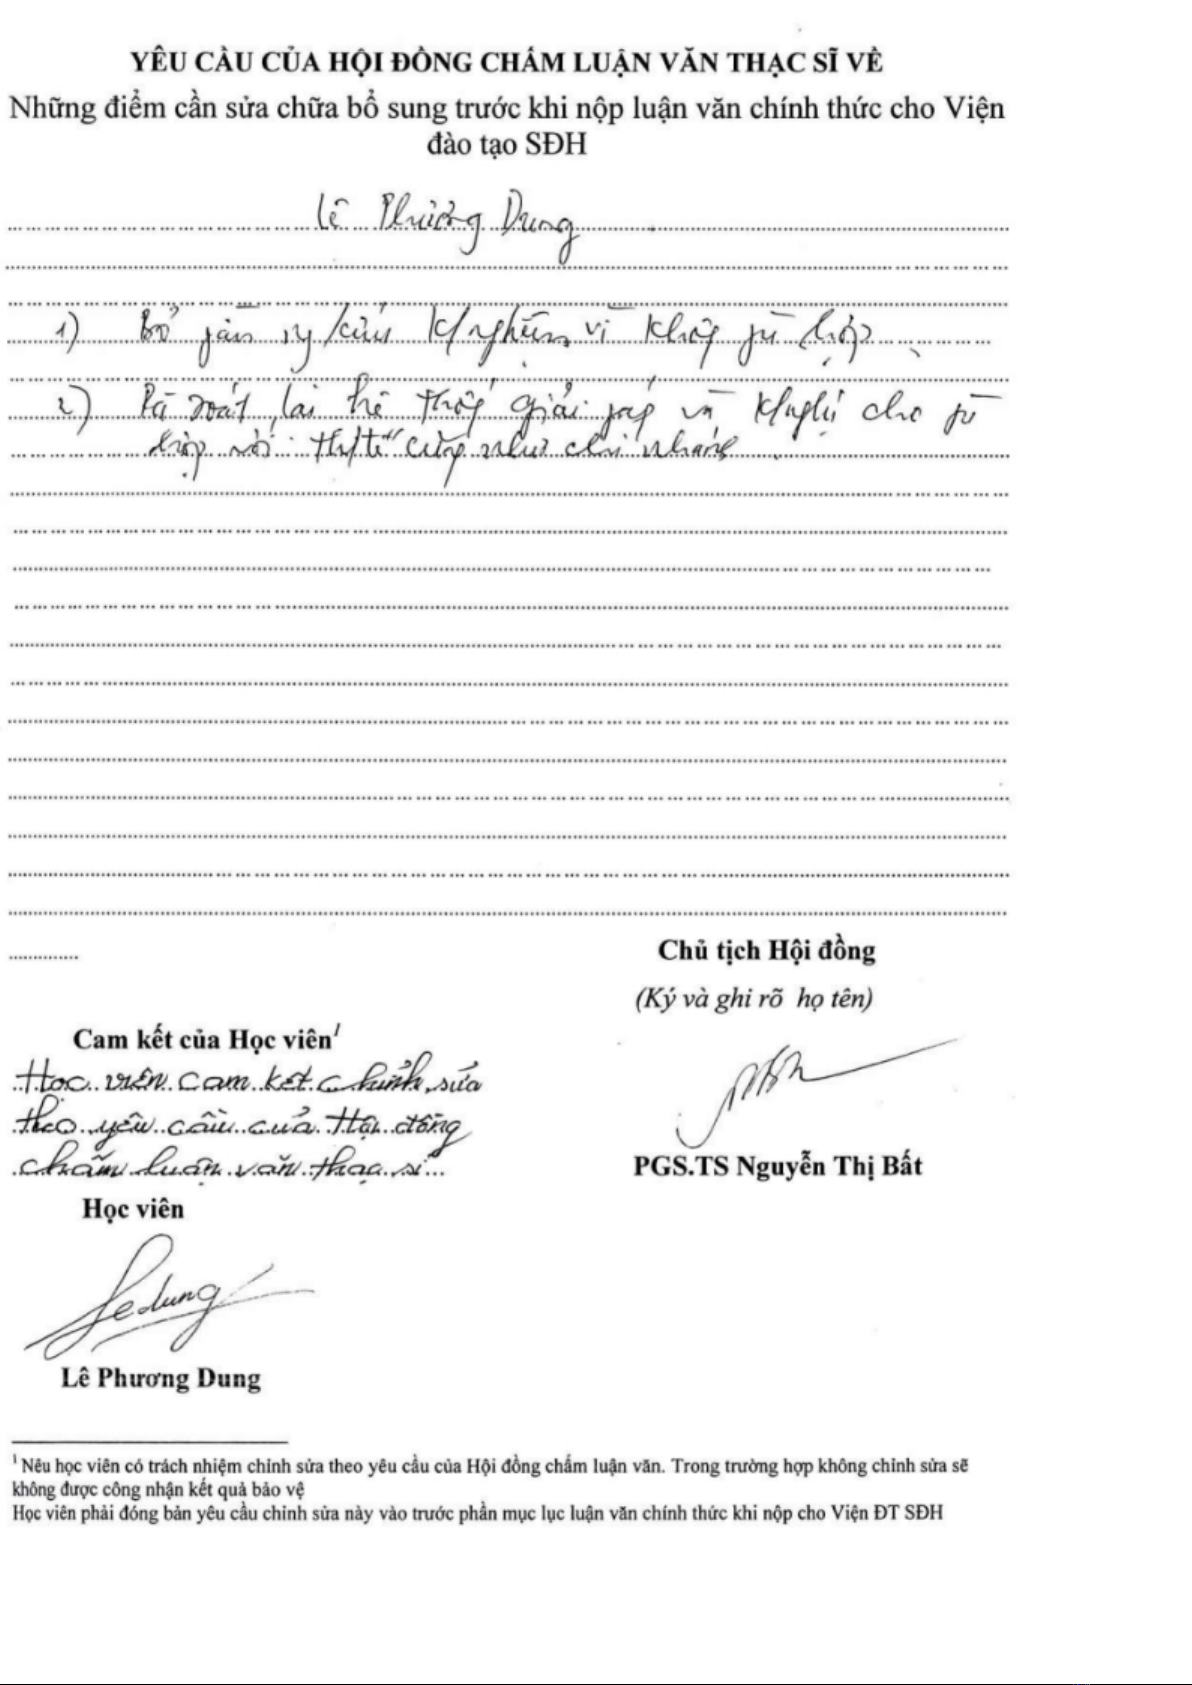 YÊU CẦU CỦA HỘI ĐỒNG CHẤM LUẬN VĂN THẠC SĨ VỀ
Những điểm cần sửa chữa bổ sung trước khi nộp luận văn chính thức cho Viện
đào tạo SĐH
Lê Phương Dung
1) Bỏ k/nghiệm vì không fù hợp
2) Rà soát lại hệ thống giải fáp và k/nghị cho fù
hợp với th/tế cũng như chi nhánh
Chủ tịch Hội đồng
(Ký và ghi rõ họ tên)
Cam kết của Học viên¹
Học viên cam kết chỉnh sửa
theo yêu cầu của Hội đồng
chấm luận văn thạc sĩ
PGS.TS Nguyễn Thị Bất
Học viên
Ledung
Lê Phương Dung
¹ Nêu học viên có trách nhiệm chỉnh sửa theo yêu cầu của Hội đồng chấm luận văn. Trong trường hợp không chỉnh sửa sẽ
không được công nhận kết quả bảo vệ
Học viên phải đóng bản yêu cầu chỉnh sửa này vào trước phần mục lục luận văn chính thức khi nộp cho Viện ĐT SĐH